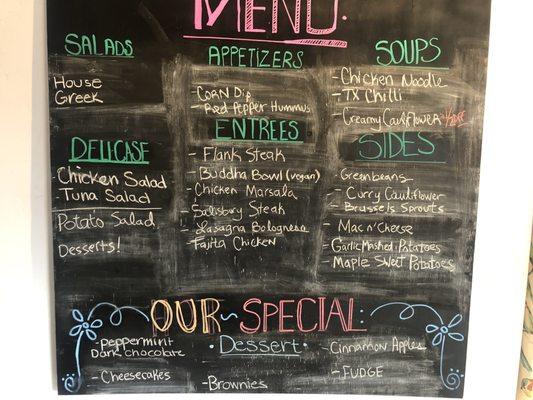 MENU.
SALADS
House
Greek
DELICASE
Chicken Salad
Tuna Salad
Potato Salad
Desserts!
APPETIZERS
- CORN Dip
- Red Pepper Hummus
ENTREES
- Flank Steak
- Buddha Bowl (vegan)
- Chicken Marsala
- Salisbury Steak
- Lasagna Bolognese
- Fajita Chicken
SOUPS
- Chicken Noodle
- TX Chilli
- Creamy Cauliflower
SIDES
- Greenbeans
- Curry Cauliflower
- Brussels Sprouts
- Mac n' Cheese
- Garlic Mashed Potatoes
- Maple Sweet Potatoes
OUR ~ SPECIAL:
• Dessert •
- peppermint
Dark chocolate
- Cheesecakes
- Brownies
- Cinnamon Apples
- FUDGE